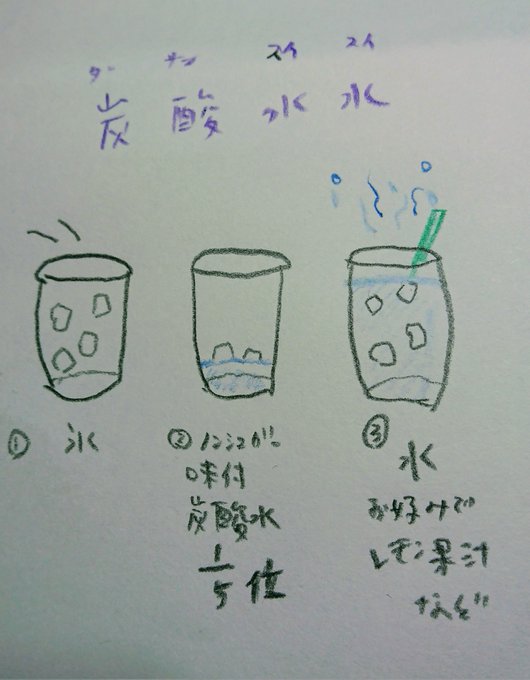 タン サン スイ スイ
炭 酸 水 水
① 氷
② ノンシュガー
味付
炭酸水
1/5 位
③ 水
お好みで
レモン果汁
など